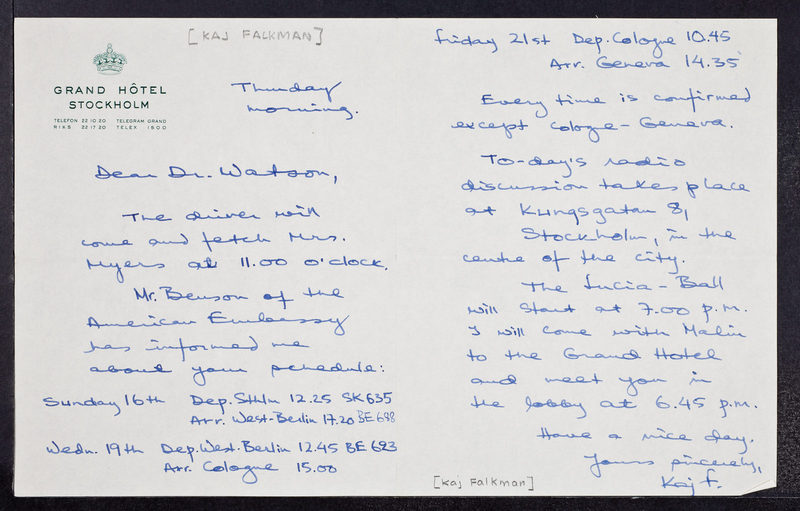 [KAJ FALKMAN]
GRAND HÔTEL
STOCKHOLM
TELEFON 22 10 20 TELEGRAM GRAND
RIKS 22 17 20 TELEX 1500
Thursday
morning.
Dear Dr. Watson,
The driver will
come and fetch Mrs.
Myers at 11.00 o'clock.
Mr. Benson of the
American Embassy
has informed me
about your schedule:
Sunday 16th Dep. Sthlm 12.25 SK 635
Arr. West-Berlin 17.20 BE 688
Wedn. 19th Dep. West-Berlin 12.45 BE 623
Arr. Cologne 15.00
Friday 21st Dep. Cologne 10.45
Arr. Geneva 14.35
Every time is confirmed
except Cologne-Geneva.
To-day's radio
discussion takes place
at Kungsgatan 8,
Stockholm, in the
centre of the city.
The Lucia-Ball
will start at 7.00 p.m.
I will come with Malin
to the Grand Hotel
and meet you in
the lobby at 6.45 p.m.
Have a nice day.
Yours sincerely,
Kaj F.
[Kaj Falkman]